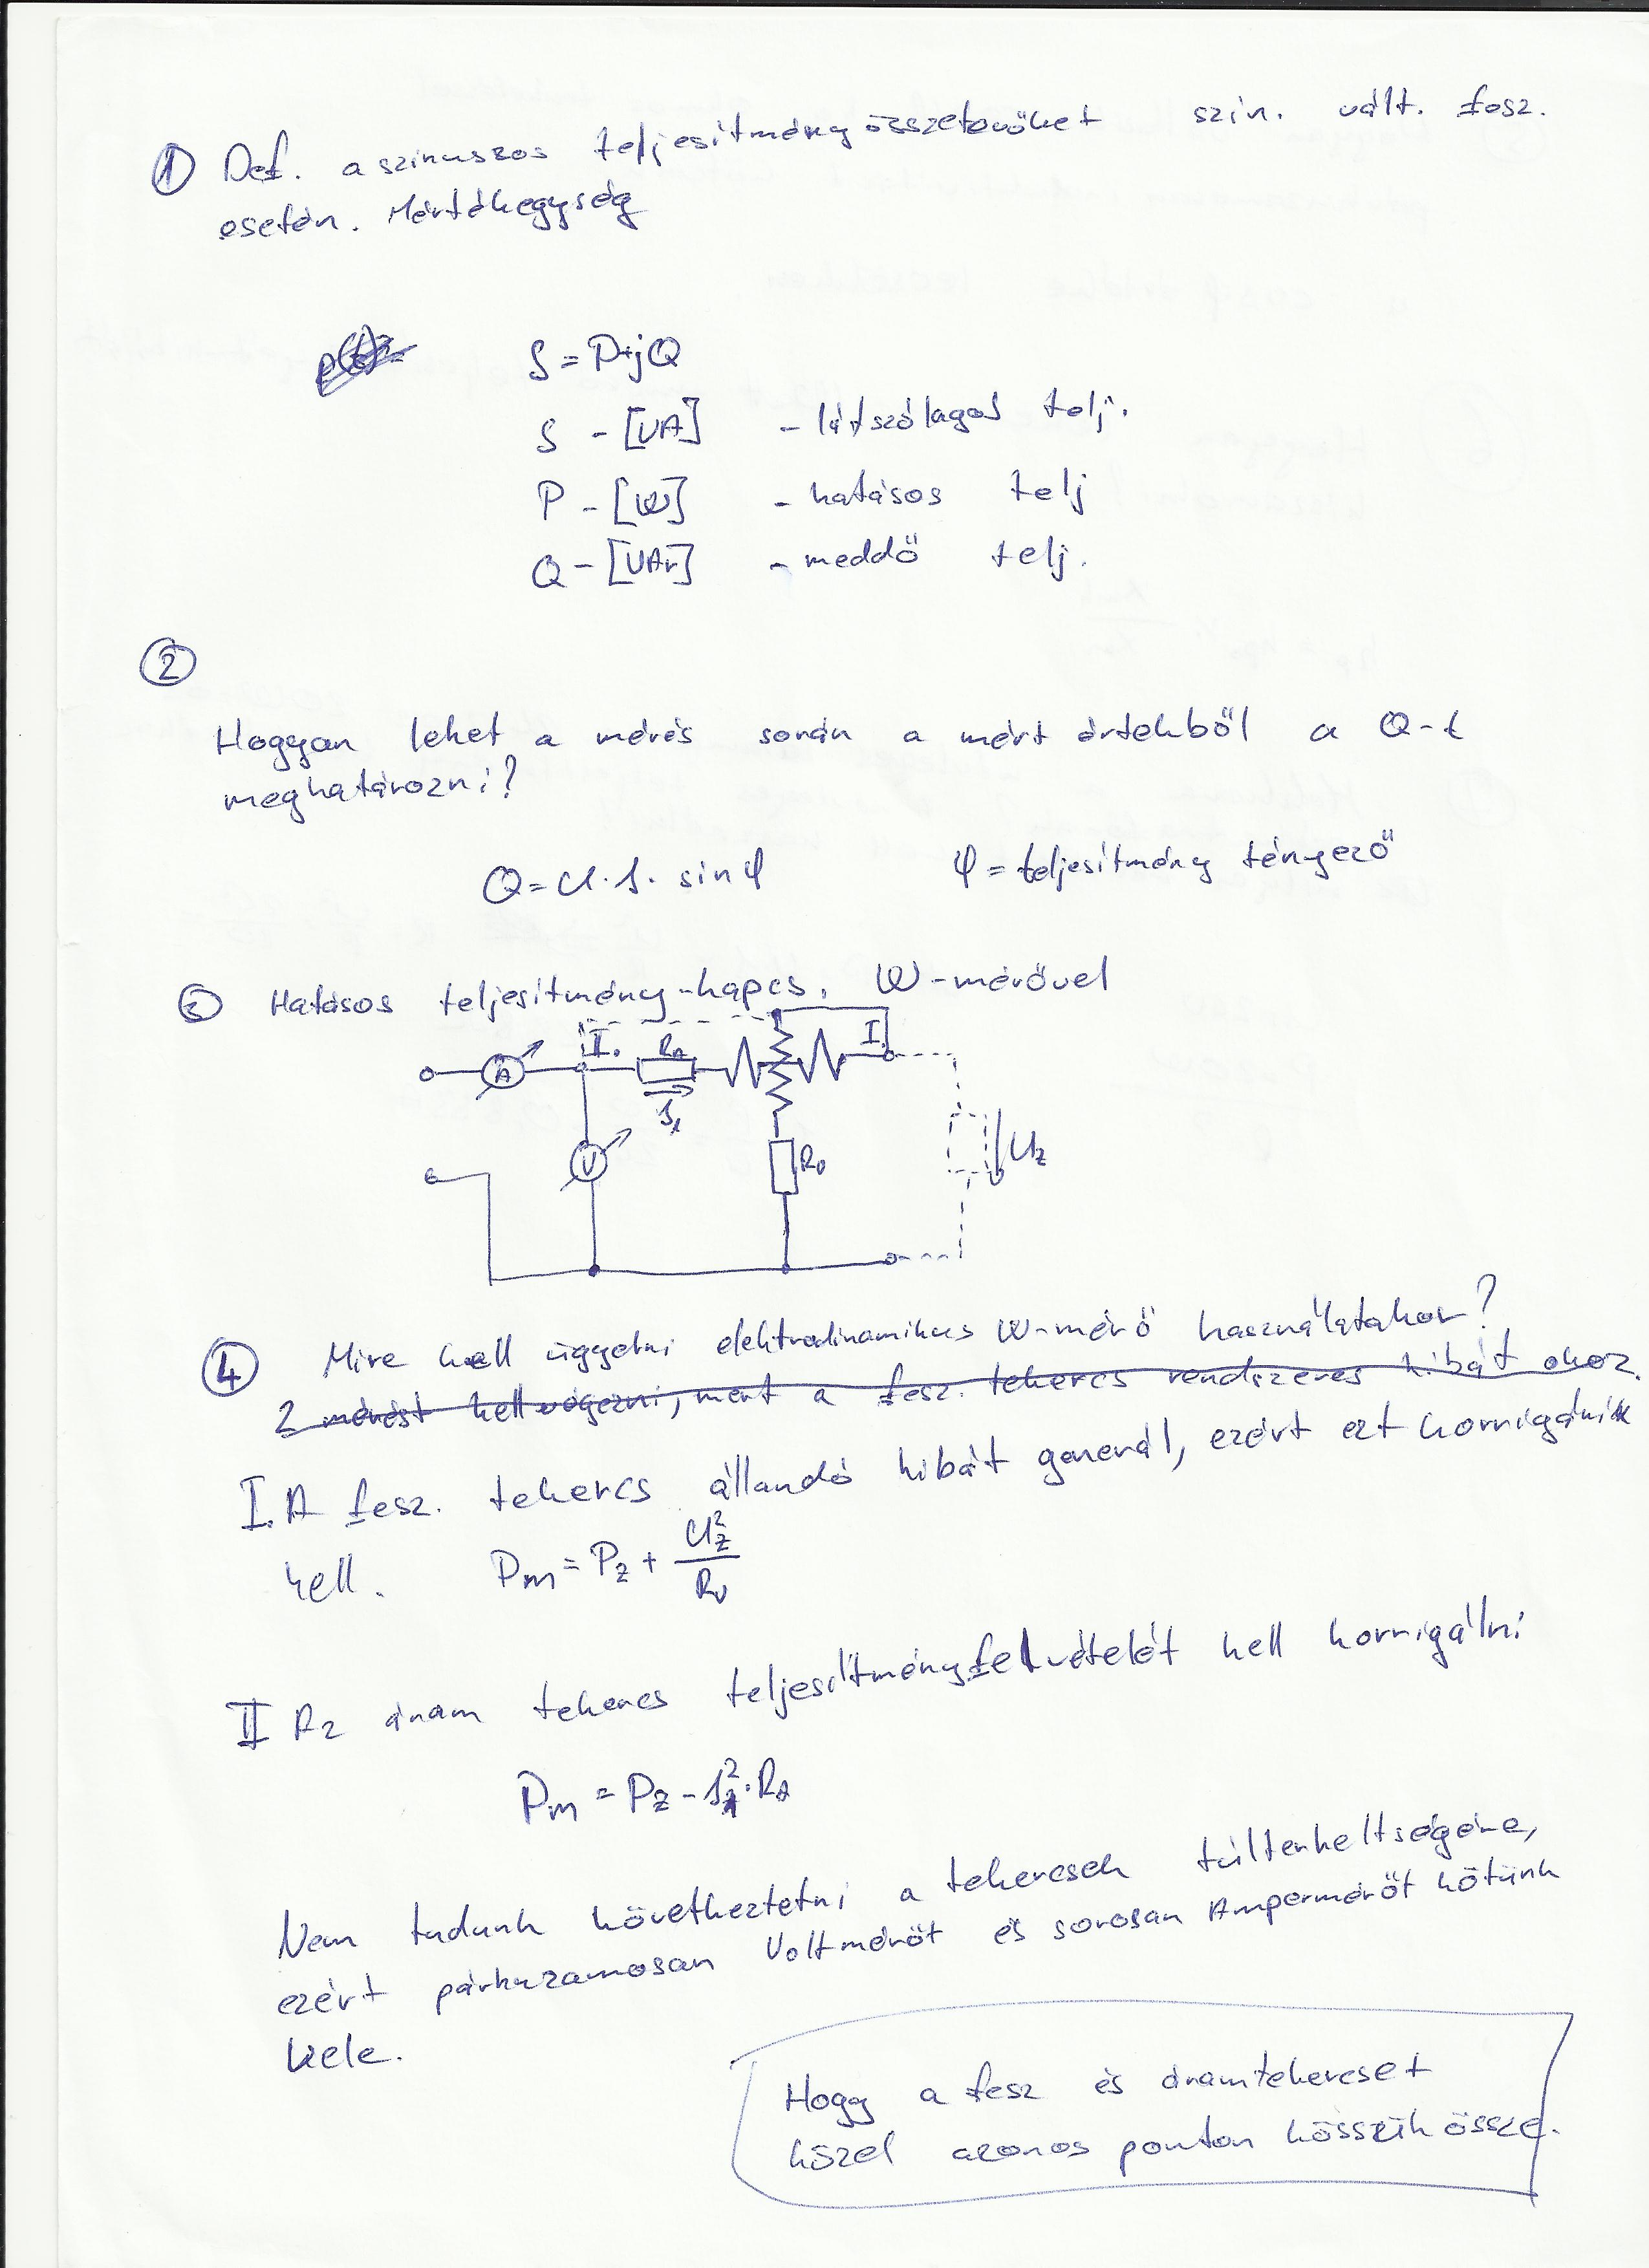 ① Def. a szinuszos teljesítményösszetevőket szin. vált. fesz.
esetén. Mértékegység
S = P+jQ
S - [VA] - látszólagos telj.
P - [W] - hatásos telj
Q - [VAr] - meddő telj.
②
Hogyan lehet a mérés során a mért értékből a Q-t
meghatározni?
Q = U·I· sin φ φ = teljesítmény tényező
③ Hatásos teljesítmény-kapcs. W-mérővel
I. RA I.
A
I1
V RV UZ
④ Mire kell ügyelni elektrodinamikus W-mérő használatakor?
2 mérést kell végezni, mert a fesz. tekercs rendszeres hibát okoz.
I. A fesz. tekercs állandó hibát generál, ezért ezt korrigálnik
kell. Pm = Pz + Uz²/Rv
II Az áram tekercs teljesítményfelvételét kell korrigálni
Pm = Pz - I1²·RA
Nem tudunk következtetni a tekercsek túlterheltségére,
ezért párhuzamosan Voltmérőt és sorosan Ampermérőt kötünk
bele.
Hogy a fesz és áramtekercset
közel azonos ponton kösszük össze.